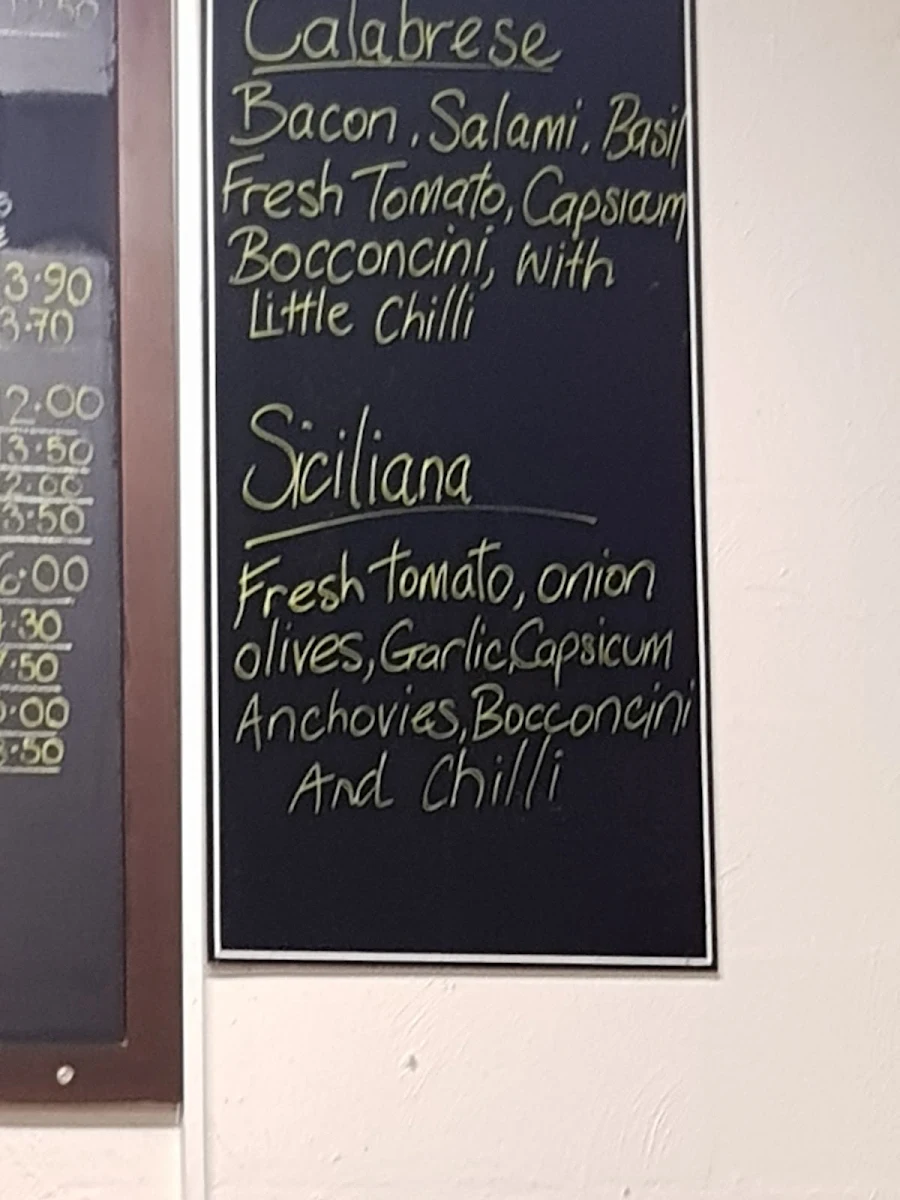 Calabrese
Bacon, Salami, Basil
Fresh Tomato, Capsicum
Bocconcini, With
Little Chilli
Siciliana
Fresh tomato, onion
olives, Garlic, Capsicum
Anchovies, Bocconcini
And Chilli
3.90
3.70
2.00
3.50
2.00
3.50
6.00
.30
.50
.00
.50